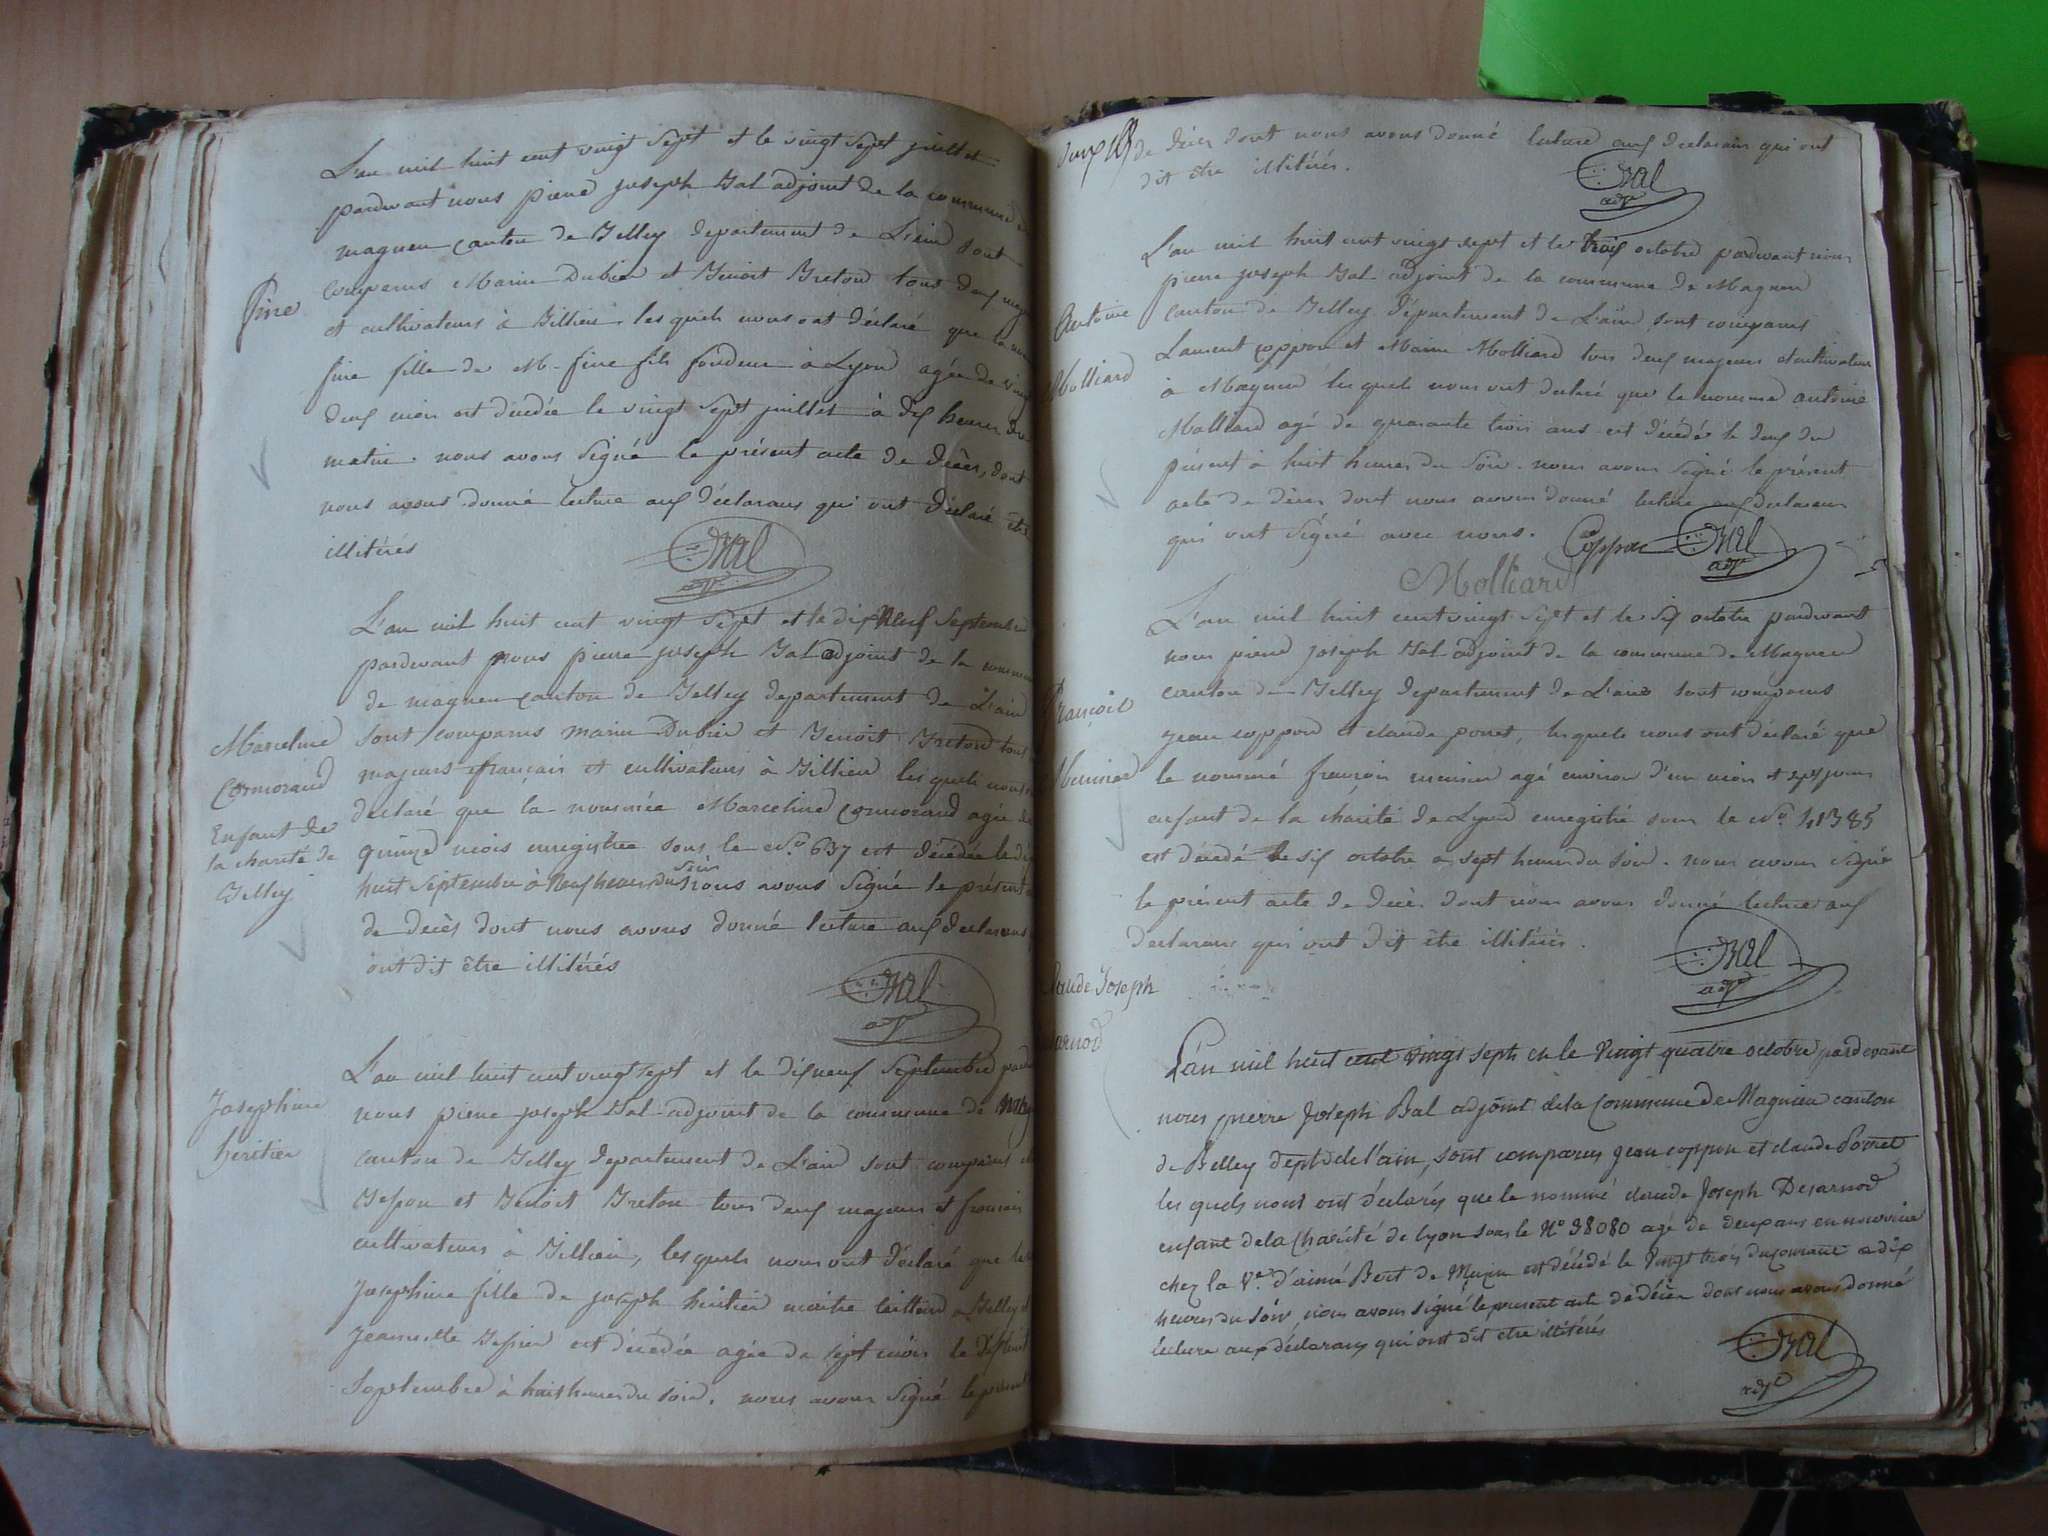 L'an mil huit cent vingt sept et le vingt sept juillet
pardevant nous pierre joseph Bal adjoint de la commune de
magneu canton de Belley departement de L'ain sont
comparus Marin Dubier et Benoit Breton tous deux majeurs
fine
et cultivateurs à Billieu, les quels nous ont déclaré que la nommée
fine fille de M. fine fils fondeur à Lyon agée de
deux mois est décédée le vingt sept juillet à dix heures du
matin. nous avons signé le présent acte de décès, dont
nous avons donné lecture aux déclarans qui ont déclaré être
illitérés
Bal
adjt
L'an mil huit cent vingt sept et le dix Neuf Septembre
pardevant nous pierre joseph Bal adjoint de la commune
de magneu canton de Belley departement de L'ain
Marceline
sont comparus marin Dubier et Benoit Breton tous
Cormorand
majeurs français et cultivateurs à Billieu les quels nous
declaré que la nommée Marceline Cormorand agée de
Enfant de
la charité de
Belley
quinze mois enregistrée sous le No. 637 est décédée le dix
huit Septembre à Neuf heures du soir nous avons signé le présent
de décès dont nous avons donné lecture aux declarans
ont dit être illitérés
Bal
adjt
L'an mil huit cent vingt sept et le dix neuf Septembre
Josephine
héritier
nous pierre joseph Bal adjoint de la commune de
canton de Belley departement de L'ain sont comparus
et Benoit Breton tous deux majeurs et français
cultivateurs à Billieu, les quels nous ont déclaré que
Josephine fille de joseph héritier maitre à Belley et
jeannette est décédée agée de sept mois le dix huit
Septembre à huit heures du soir. nous avons signé le présent
de décès dont nous avons donné lecture aux declarans qui ont
dit être illitérés.
Bal
adjt
L'an mil huit cent vingt sept et le trois octobre pardevant nous
pierre joseph Bal adjoint de la commune de Magneu
Antoine
Molliard
canton de Belley Département de L'ain sont comparus
Laurent coppon et Marin Molliard tous deux majeurs et cultivateurs
à Magneu les quels nous ont declaré que le nommé antoine
Molliard agé de quarante trois ans est décédé le deux du
présent à huit heures du soir. nous avons signé le présent
acte de décès dont nous avons donné lecture aux declarans
qui ont signé avec nous.
Coppon
Bal
adjt
Molliard
L'an mil huit cent vingt sept et le six octobre pardevant
nous pierre joseph Bal adjoint de la commune de Magneu
François
canton de Belley departement de L'ain sont comparus
jean coppon et claude ponet, les quels nous ont déclaré que
le nommé françois agé environ d'un mois et sept jours
enfant de la charité de Lyon enregistré sous le No. 41385
est décédé le six octobre a sept heures du soir. nous avons signé
le présent acte de décès dont nous avons donné lecture aux
declarans qui ont dit être illitérés.
Bal
adjt
Claude Joseph
L'an mil huit cent vingt sept et le vingt quatre octobre pardevant
nous pierre Joseph Bal adjoint de la Commune de Magnieu canton
de Belley dept de l'ain, sont comparus jean coppon et claude Ponet
les quels nous ont déclarés que le nommé claude Joseph Desarnod
enfant de la Charité de lyon sous le No 38080 agé de deux ans en nourrice
chez la Ve d'aimé Bert de Muzin est décédé le vingt trois du courant a dix
heures du soir, nous avons signé le present acte de décès dont nous avons donné
lecture aux déclarans qui ont dit etre illitérés
Bal
adjt